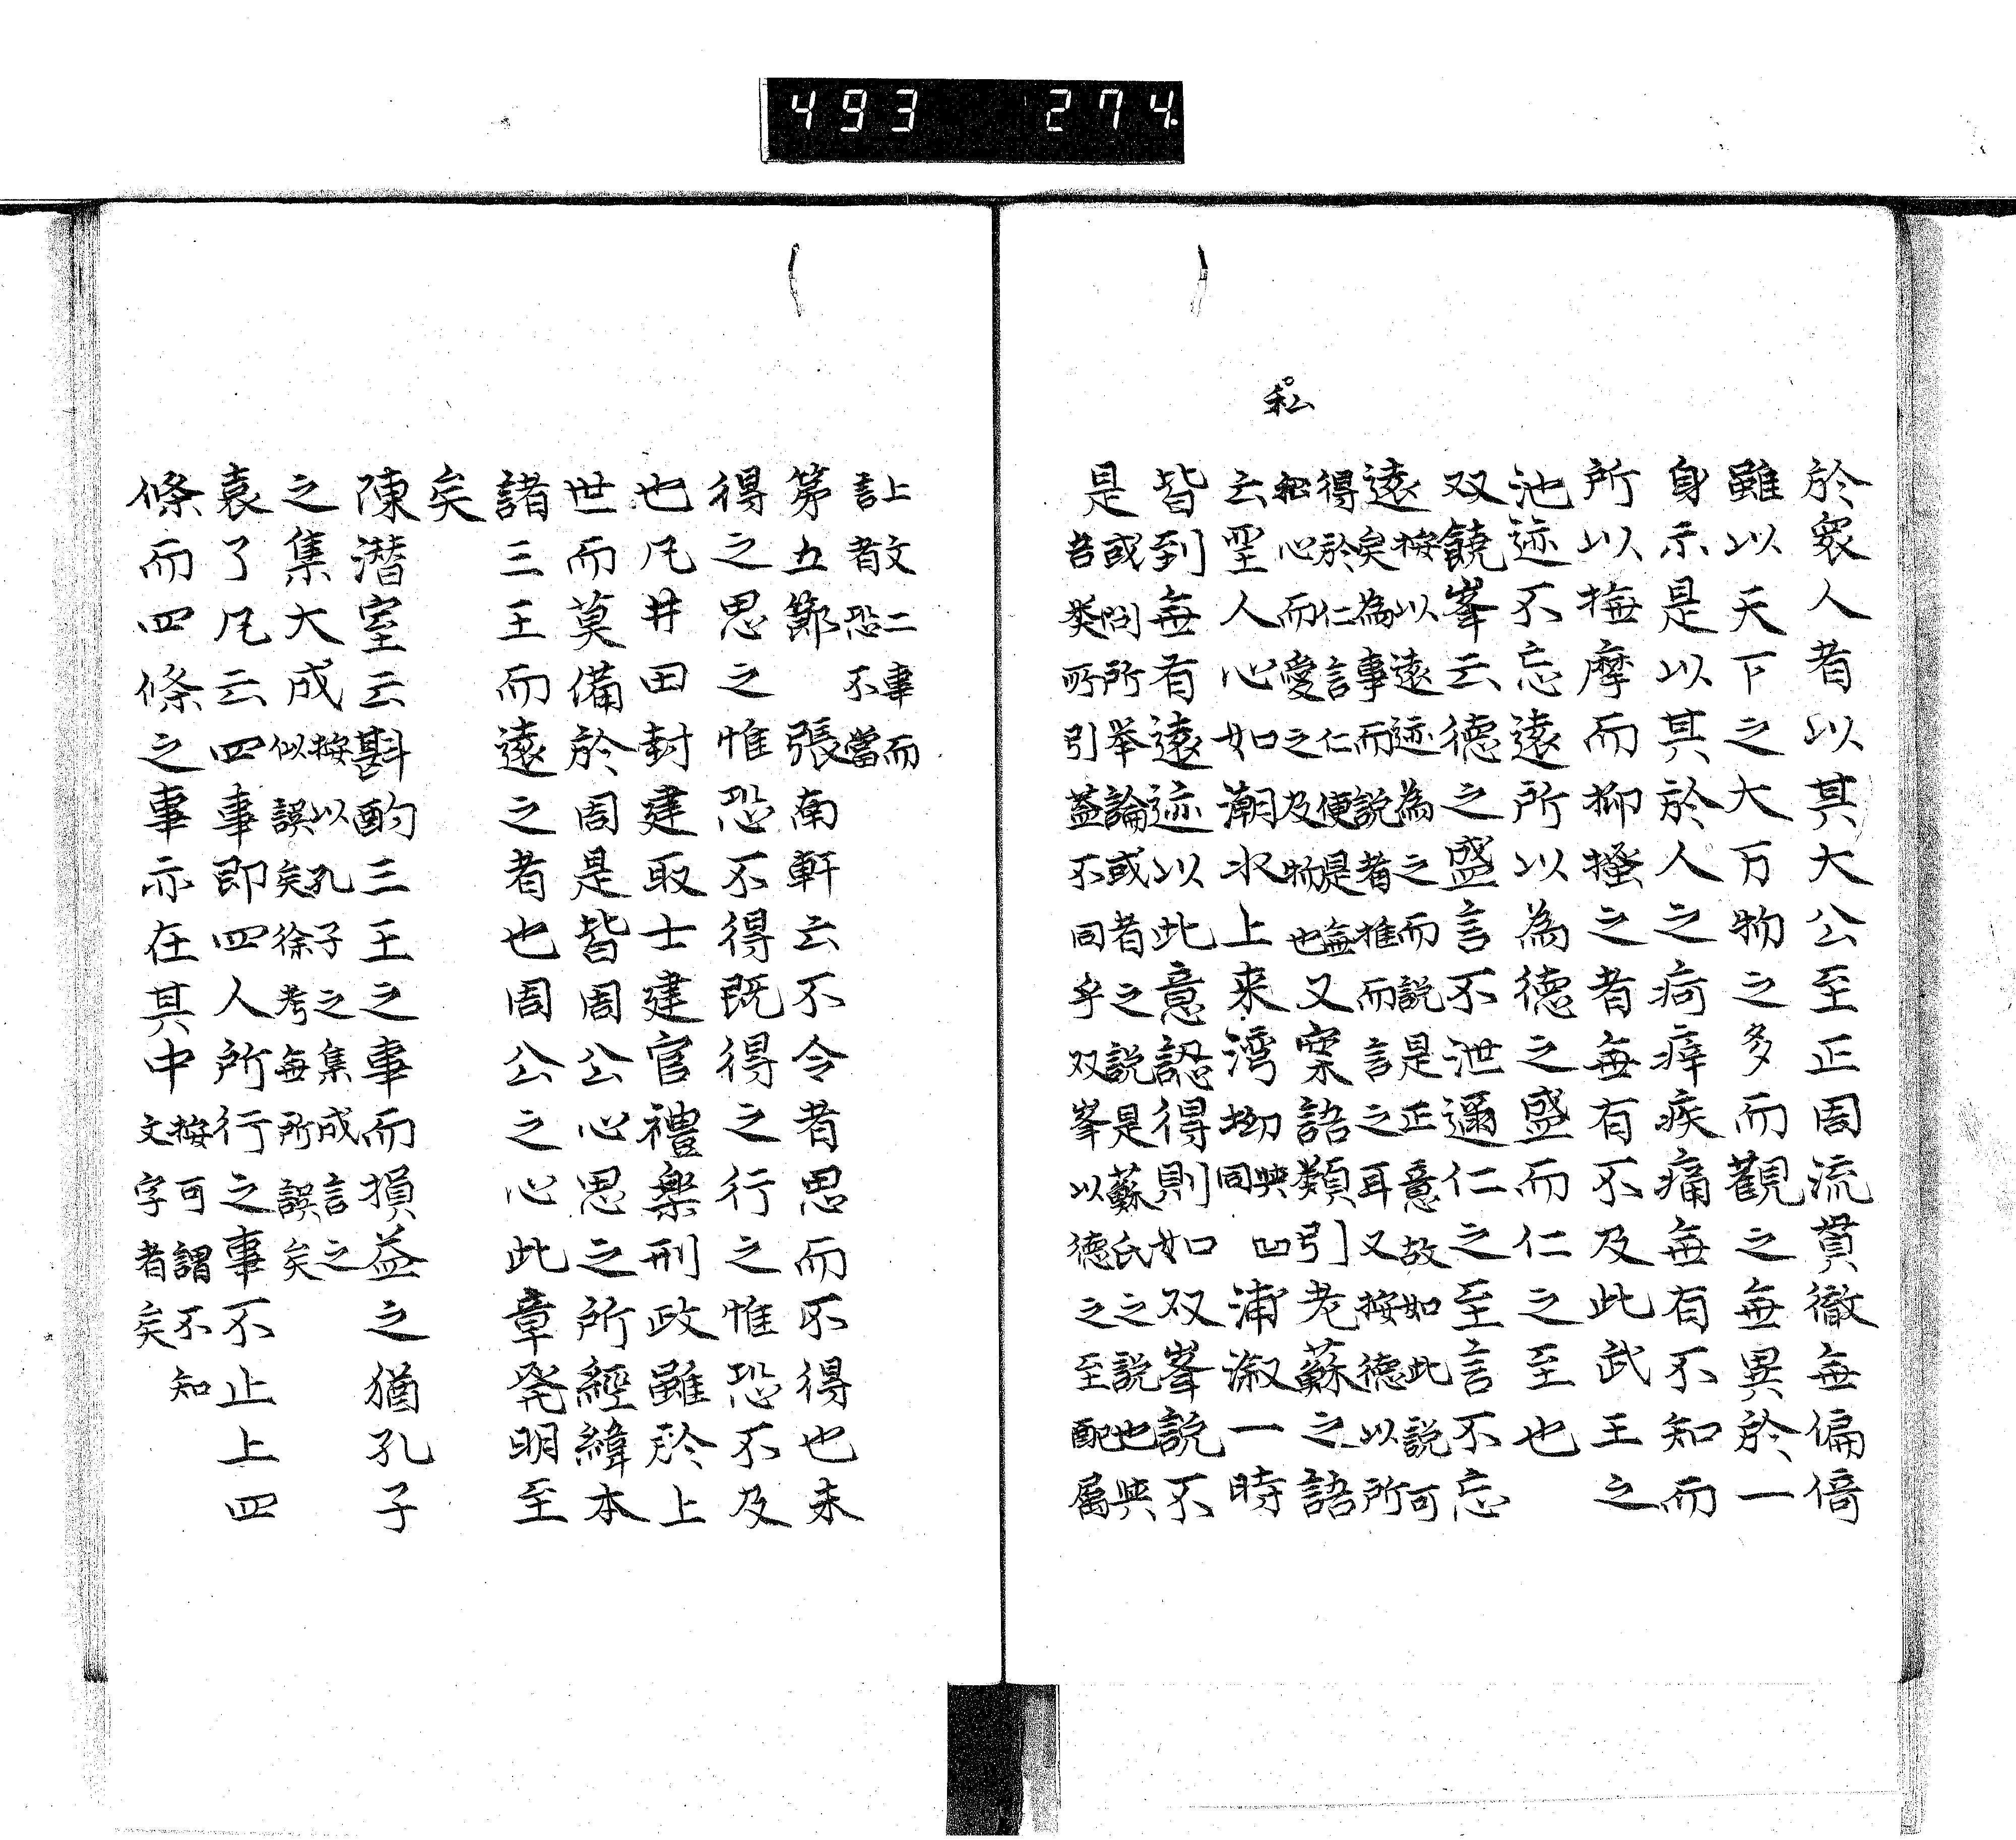 於衆人者以其大公至正周流貫徹無偏倚
雖以天下之大万物之多而觀之無異於一
身示是以其於人之疴痒疾痛無有不知而
所以撫摩而抑搔之者無有不及此武王之
池迹不忘遠所以為德之盛而仁之至也
双饒峯云德之盛言不泄邇仁之至言不忘
遠
按以遠迹為之而説是正意故如此説可
矣為事而説者推而言之耳又按德以所
私
得於仁言仁便是盡
私心而愛之及物也
又案語類引老蘇之語
云聖人心如潮水上来湾坳
與凹
同
浦溆一時
皆到無有遠迹以此意認得則如双峯説不
是
或問所举論或者之説是蘇氏之説也與
昔類所引蓋不同乎双峯以德之至配属
上文二事而
言者恐不當
第五節 張南軒云不令者思而不得也未
得之思之惟恐不得既得之行之惟恐不及
也凡井田封建取士建官禮樂刑政雖於上
世而莫備於周是皆周公心思之所經緯本
諸三王而遠之者也周公之心此章発明至
矣
陳潜室云斟酌三王之事而損益之猶孔子
之集大成
按以孔子之集成言之
似誤矣徐考無所誤矣
袁了凡云四事即四人所行之事不止上四
條而四條之事亦在其中
按可謂不知
文字者矣
493 274